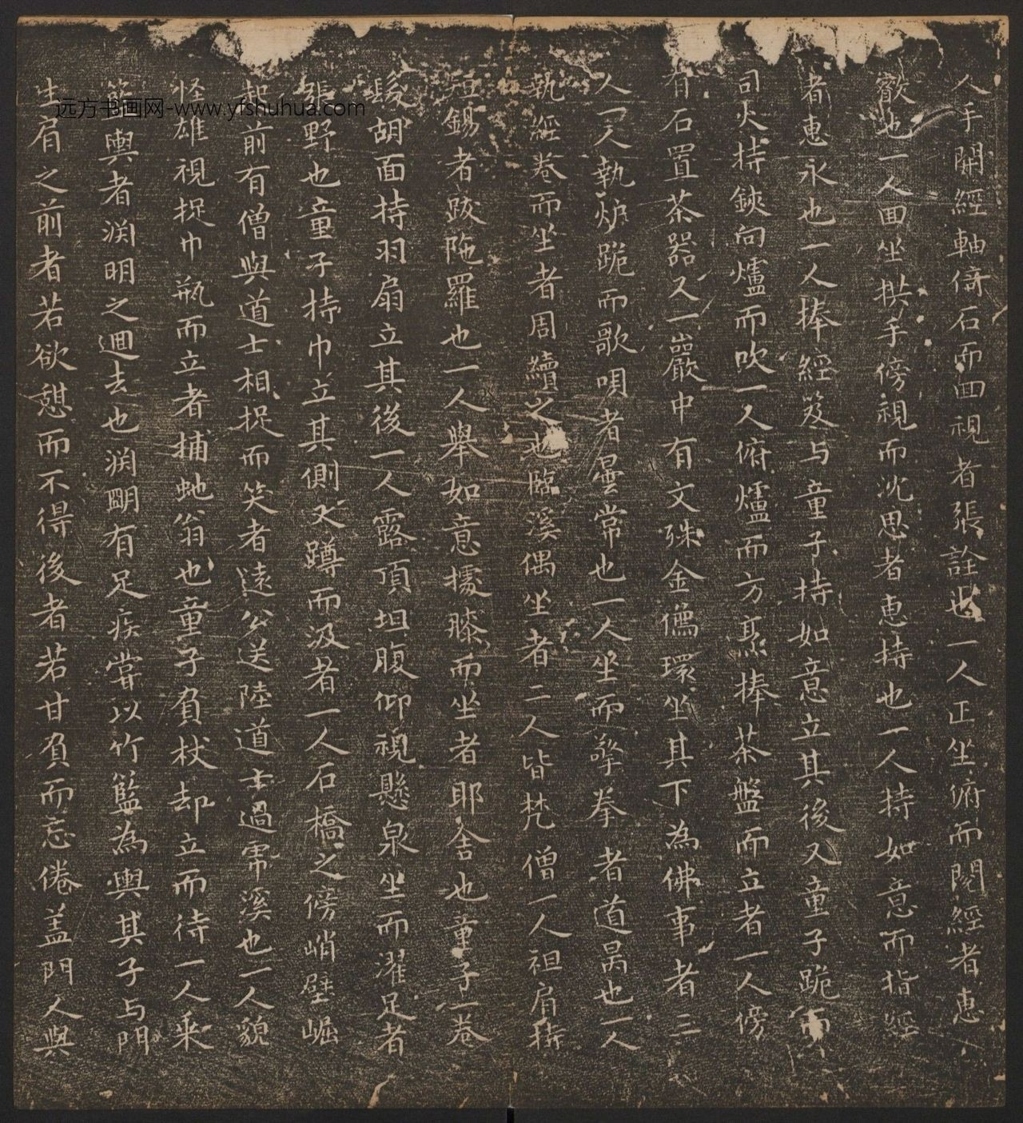 人手開經軸倚石而回視者張詮也一人正坐俯而閱經者惠
叡也一人回坐拱手傍視而沈思者惠持也一人持如意而指經
者惠永也一人捧經笈与童子持如意立其後又童子跪而
司火持鋏向爐而吹一人俯爐而方捧茶盤而立者一人傍
有石置茶器又一巖中有文殊金像環坐其下為佛事者三
人一人執炉跪而歌唄者曇常也一人坐而擎拳者道昺也一人
執經卷而坐者周續之也臨溪偶坐者二人皆梵僧一人袒肩持
短錫者跋陁羅也一人舉如意據膝而坐者耶舍也童子一卷
髮胡面持羽扇立其後一人露頂坦腹仰視懸泉坐而濯足者
野也童子持巾立其側又蹲而汲者一人石橋之傍峭壁崛
起前有僧與道士相捉而笑者遠公送陸道士過虎溪也一人貌
怪雄視捉巾瓶而立者捕虵翁也童子負杖却立而待一人乘
籃輿者渕明之迴去也渕明有足疾嘗以竹籃為輿其子与門
生肩之前者若欲憇而不得後者若甘負而忘倦盖門人與
远方书画网-www.yfshuhua.com